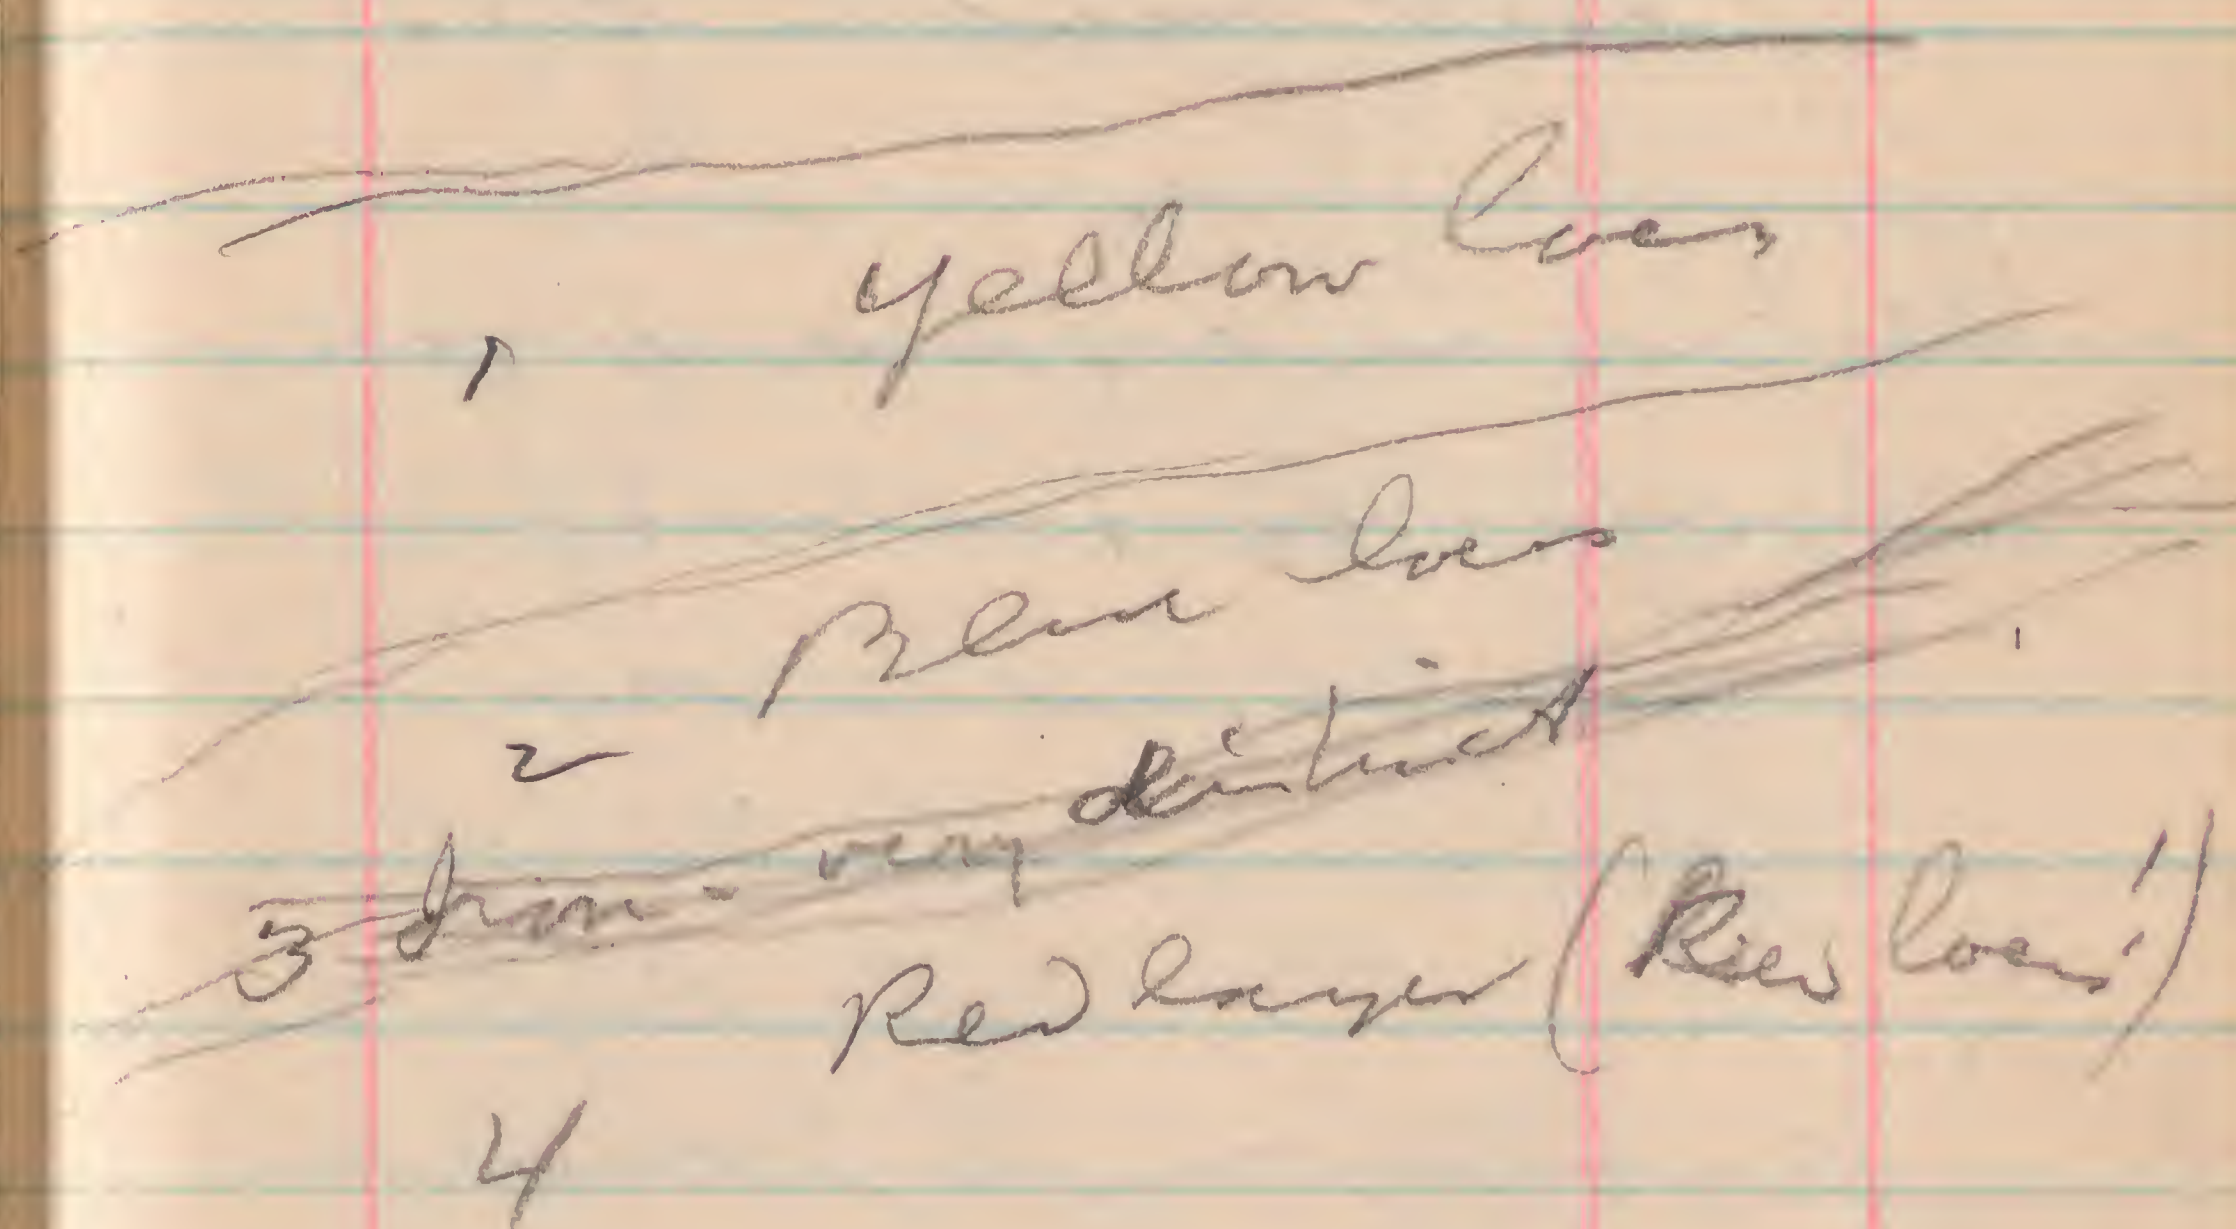 yellow loess
1
Blue loess
2
3 Iron - very distinct
Red layer (Red loess!)
4